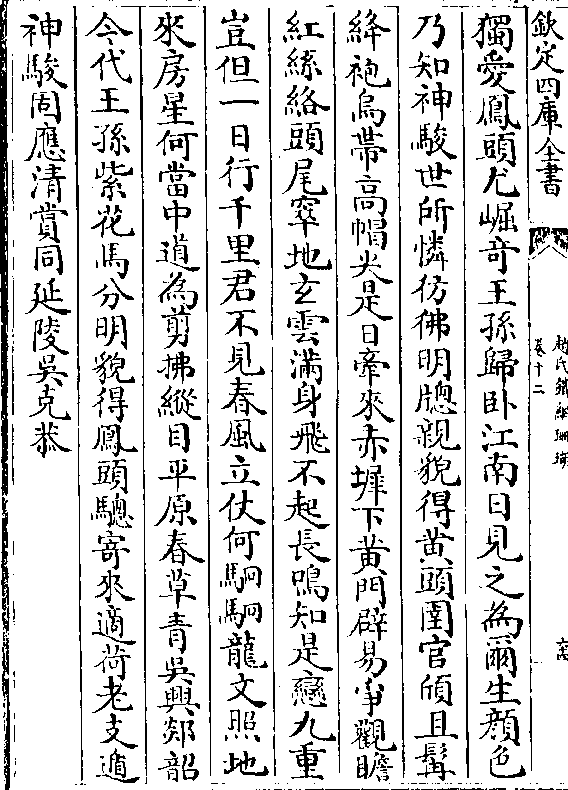 欽定四庫全書
趙氏鐵網珊瑚
卷十二
獨愛鳳頭尤崛竒王孫歸卧江南日見之為爾生顔色
乃知神駿世所憐彷彿明牎親貌得黄頭圉官頎且髯
絳袍烏帶高帽尖是日牽來赤墀下黄門辟易爭觀瞻
紅絲絡頭尾窣地玄雲滿身飛不起長鳴知是戀九重
豈但一日行千里君不見春風立仗何駉駉龍文照地
來房星何當中道為剪拂縱目平原春草青吳興郯韶
今代王孫紫花馬分明貌得鳳頭驄寄來適荷老支遁
神駿固應清賞同延陵吳克恭